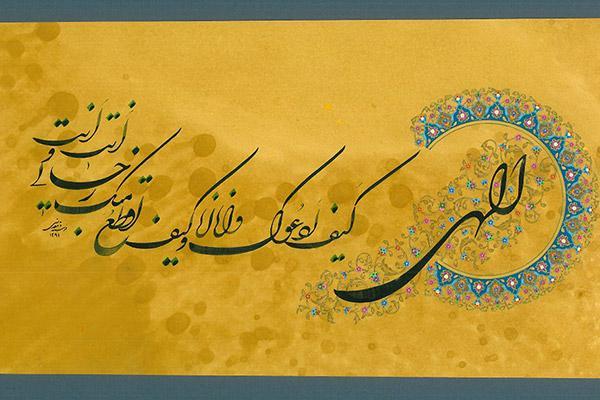 الهی کیف ادعوک و انا انا و کیف اقطع رجائی منک و انت انت
۱۳۹۱